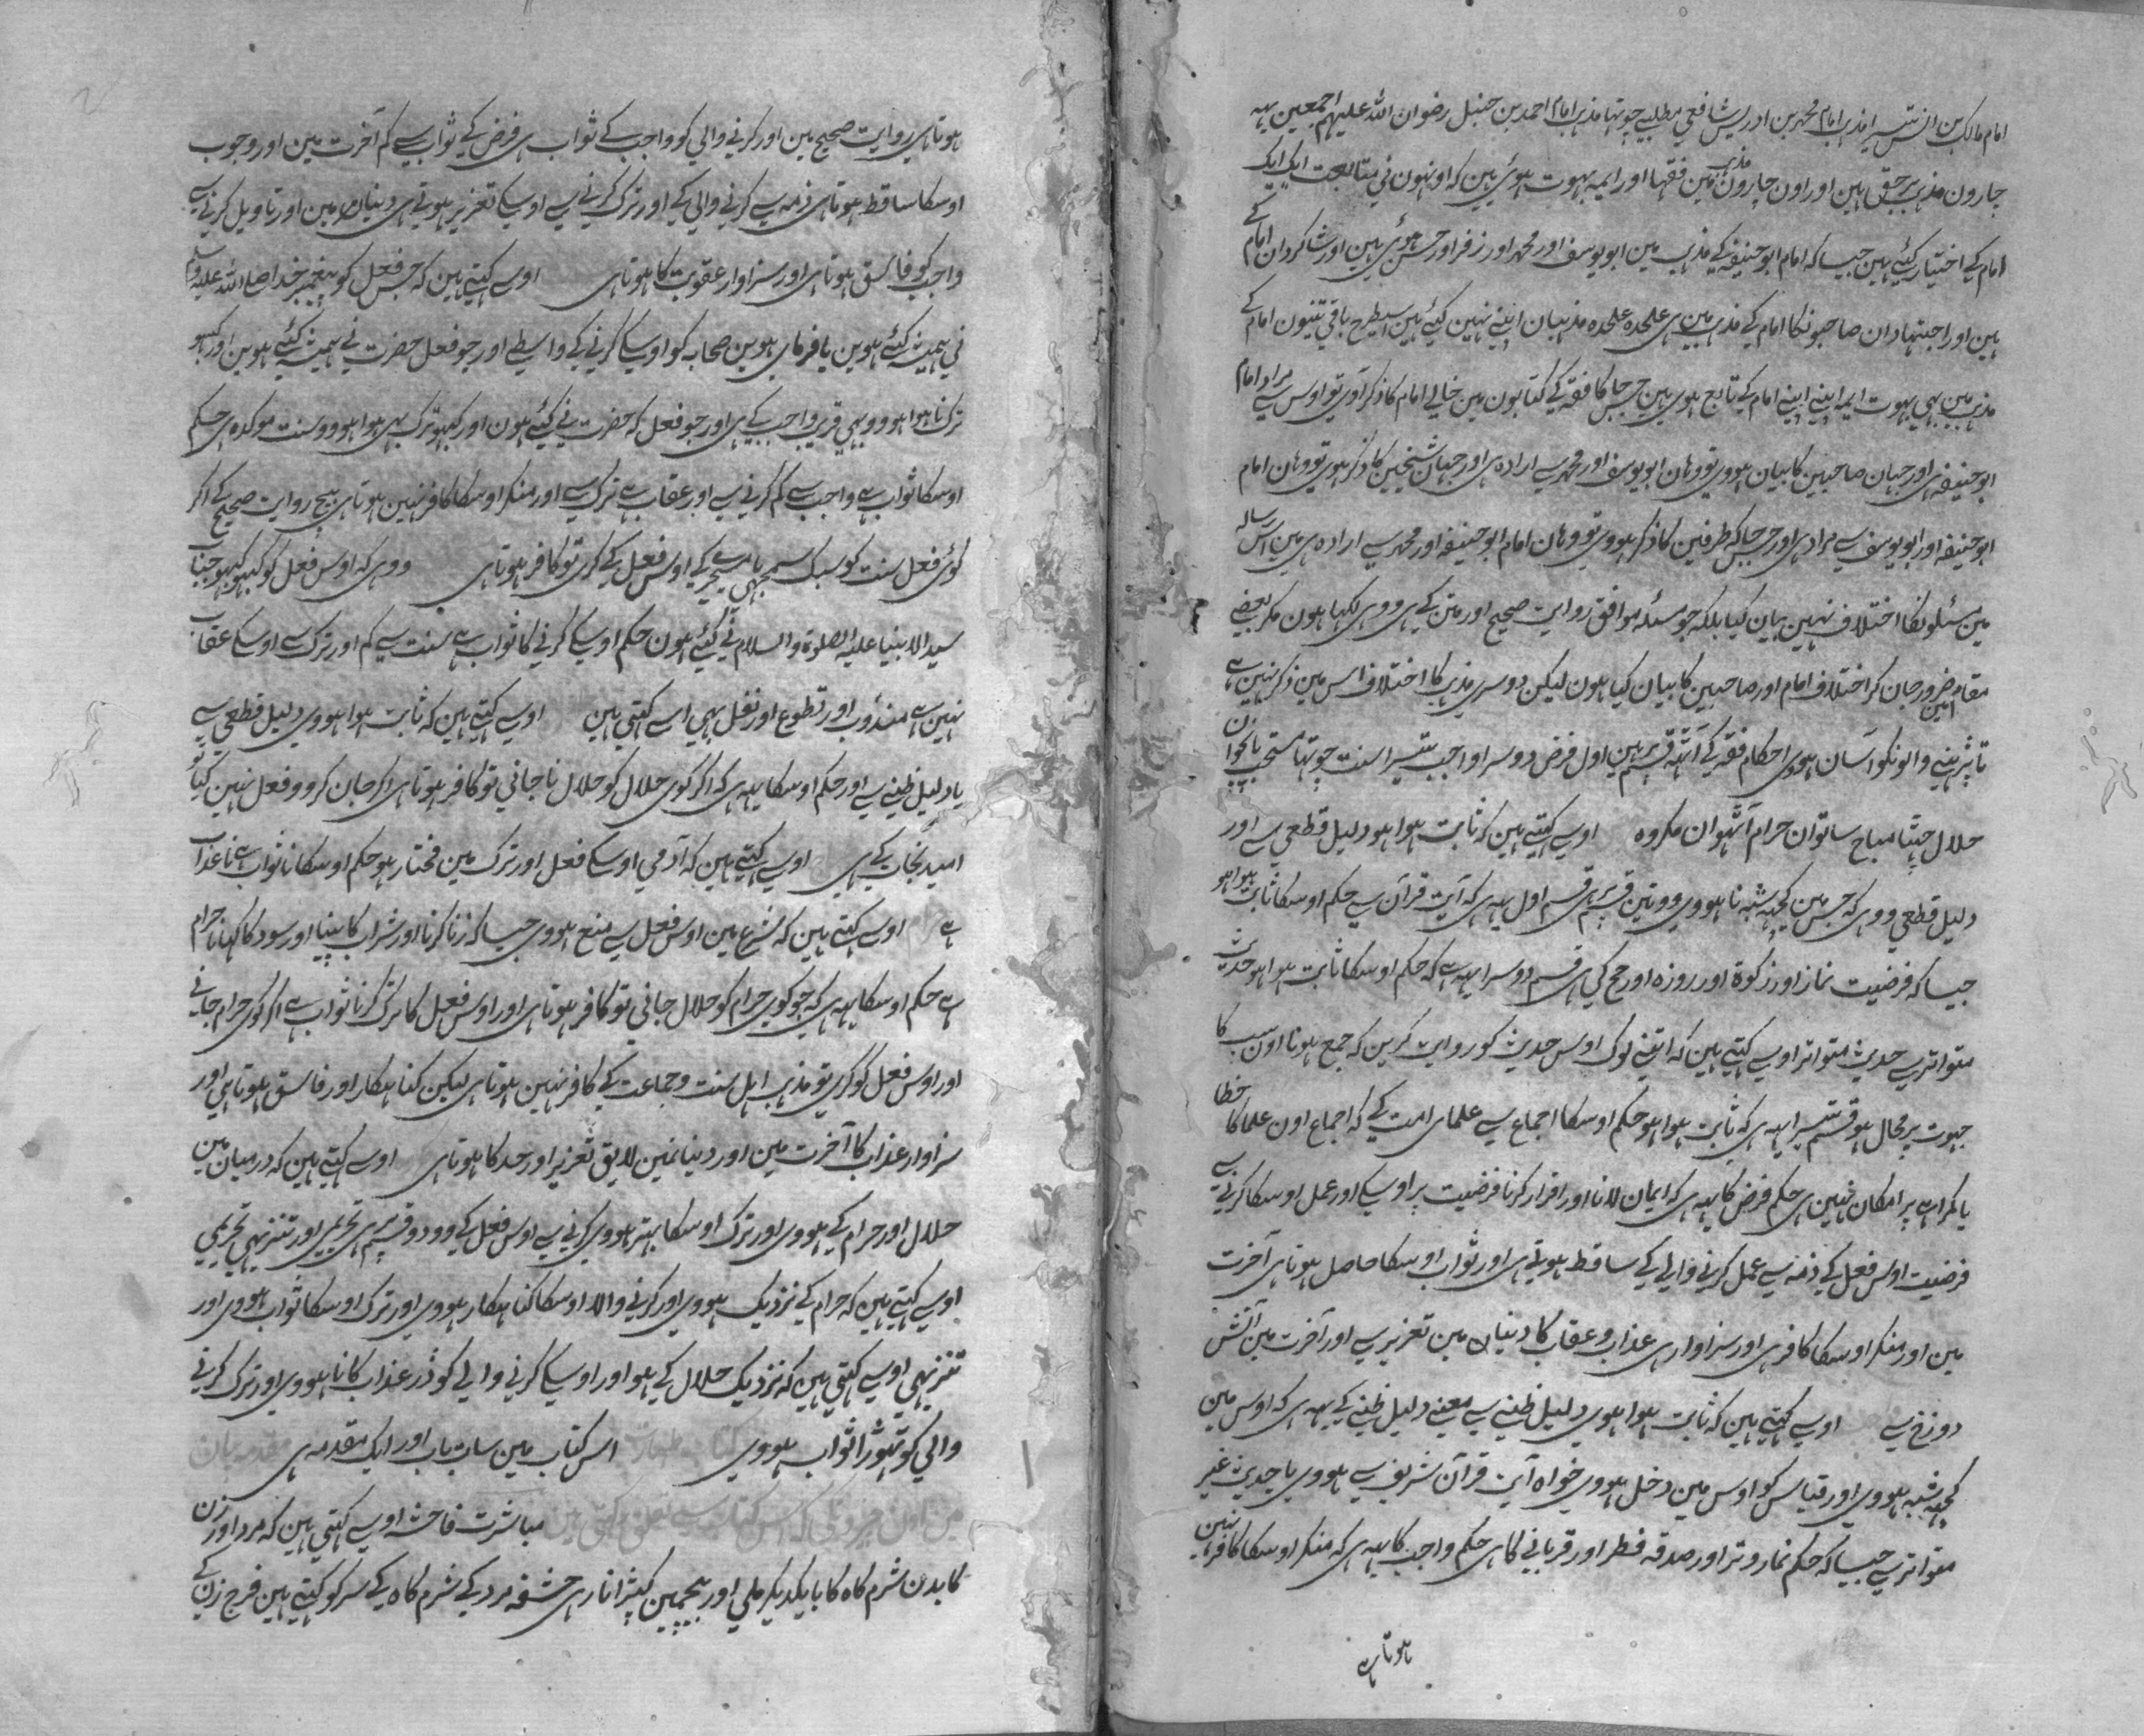 امام مالک بن انس تیسرا مذہب امام محمد بن ادریس شافعی مطلبی چوتھا مذہب امام احمد بن حنبل رضوان اللہ علیہم اجمعین یہہ
چارون مذہب برحق ہین اور اون چارون مذہب مین فقہا اور ایمہ بہوت ہوئی ہین کہ اونہون نی متابعت ایک ایک
امام کے اختیار کیئے ہین جیسا کہ امام ابو حنیفہ کے مذہب مین ابو یوسف اور محمد اور زفر اور حسن ہوئی ہین اور شاکردان امام کے
ہین اور اجتہاد ان صاحبونکا امام کے مذہب مین ہی علحدہ علحدہ مذہبان اپنے نہین کیئے ہین اسیطرح باقی تینون امام کے
مذہب مین بہی بہوت ایمہ اپنے اپنے امام کے تابع ہوی ہین جس جاکا فقہ کے کتابون مین خالی امام کا ذکر آوی تو اوس سے مراد امام
ابو حنیفہ ہی اور جہان صاحبین کا بیان ہووی تو وہان ابو یوسف اور محمد سے ارادہ ہی اور جہان شیخین کا ذکر ہوی تو وہان امام
ابو حنیفہ اور ابو یوسف سے مراد ہی اور جس جاکہ طرفین کا ذکر ہووی تو وہان امام ابو حنیفہ اور محمد سے ارادہ ہی مین اس رسالہ
مین مسئلونکا اختلاف نہین بیان کیا بلکہ جو مسئلہ موافق روایت صحیح اور متن کے ہی ووہی لکہا ہون مکر بعضے
مقام مین ضرور جان کر اختلاف امام اور صاحبین کا بیان کیا ہون لیکن دوسری مذہب کا اختلاف اس مین ذکر نہین ہے
تا پڑہنے والونکو آسان ہووی احکام فقہ کے آٹہہ قسم ہین اول فرض دوسرا واجب تیسرا سنت چوتہا مستحب پانچوان
حلال چہٹا مباح ساتوان حرام آٹہوان مکروہ اوسے کہتے ہین کہ ثابت ہوا ہو دلیل قطعی سے اور
دلیل قطعی ووہی کہ جس مین کچہہ شبہ نا ہووی وو تین قسم پر ہی قسم اول یہہ ہی کہ آیت قرآن سے حکم اوسکا ثابت ہوا ہو
جیسا کہ فرضیت نماز اور زکوۃ اور روزہ اور حج کی ہی قسم دوسرا یہہ ہے کہ حکم اوسکا ثابت ہوا ہو حدیث
متواتر سے حدیث متواتر اوسے کہتے ہین کہ اتنے لوک اوس حدیث کو روایت کرین کہ جمع ہونا اون سب کا
جہوت پر محال ہو قسم تیسرا یہہ ہی کہ ثابت ہوا ہو حکم اوسکا اجماع سے علمای امت کے کہ اجماع اون علما کا خطا
یا کمراہے پر امکان نہین ہی حکم فرض کا یہہ ہی کہ ایمان لانا اور اقرار کرنا فرضیت پر اوسکے اور عمل اوسکا کرنے سے
فرضیت اوس فعل کے ذمہ سے عمل کرنے والے کے ساقط ہوتے ہی اور ثواب اوسکا حاصل ہوتا ہی آخرت
مین اور منکر اوسکا کافر ہی اور سزاوار ہی عذاب و عقاب کا دنیا مین تعزیر سے اور آخرت مین آتش
دوزخ سے اوسے کہتے ہین کہ ثابت ہوا ہوی دلیل ظنے سے معنے دلیل ظنے کے یہہ ہی کہ اوس مین
کچہہ شبہ ہووی اور قیاس کو اوس مین دخل ہووی خواہ آیت قرآن شریف سے ہووی یا حدیث غیر
متواتر سے جیسا کہ حکم نماز وتر اور صدقہ فطر اور قربانے کا ہی حکم واجب کا یہہ ہی کہ منکر اوسکا کافر نہین
ہوتا ہے
ہوتا ہی روایت صحیح مین اور کرنے والی کو واجب کے ثواب ہی فرض کے ثواب سے کم آخرت مین اور وجوب
اوسکا ساقط ہوتا ہی ذمہ سے کرنے والی کے اور ترک کرنے سے اوسکے تعزیر ہوتے ہی دنیا مین اور تاویل کرنے سے
واجب کو فاسق ہوتا ہی اور سزاوار عقوبت کا ہوتا ہی اوسے کہتے ہین کہ جس فعل کو پیغمبر خدا صلے اللہ علیہ وسلم
نی ہمیشہ کئے ہوین یا فرمای ہوین صحابہ کو اوسکے کرنے کے واسطے اور جو فعل حضرت نے ہمیشہ کئے ہوین اور کبہو
ترک نا ہوا ہو وو بہی قریب واجب کے ہی اور جو فعل کہ حضرت نے کیئے ہون اور کبہو ترک بہی ہوا ہو وو سنت موکدہ ہی حکم
اوسکا ثواب ہے واجب سے کم کرنے سے اور عقاب ہے ترک سے اور منکر اوسکا کافر نہین ہوتا ہی بیچ روایت صحیح کے اکر
کوئی فعل سنت کو سبک سمجہی یا اوس فعل کے کری تو کافر ہوتا ہی ووہی کہ اوس فعل کو کبہو کبہو جناب
سید الانبیا علیہ الصلوۃ والسلام نے کیئے ہون حکم اوسکے کرنے کا ثواب ہے سنت سے کم اور ترک سے اوسکے عقاب
نہین ہے مندوب اور تطوع اور نفل بہی اسے کہتی ہین اوسے کہتے ہین کہ ثابت ہوا ہووی دلیل قطعی سے
یا دلیل ظنے سے اور حکم اوسکا یہہ ہی کہ اکر کوی حلال کو حلال نا جانی تو کافر ہوتا ہی اکر جان کر وو فعل نہین کیا تو
امید نجات کے ہی اوسے کہتے ہین کہ آدمی اوسکے فعل اور ترک مین مختار ہو حکم اوسکا نا ثواب ہے نا عذاب
ہے اوسے کہتے ہین کہ شرع مین اوس فعل سے منع ہووی جیسا کہ زنا کرنا اور شراب کا پینا اور سود کا کہانا حرام
ہے حکم اوسکا یہہ ہی کہ جو کوی حرام کو حلال جانی تو کافر ہوتا ہی اور اوس فعل کا ترک کرنا ثواب ہے اکر کوی حرام جانے
اور اوس فعل کو کری تو مذہب اہل سنت و جماعت کے کافر نہین ہوتا ہی لیکن کناہکار اور فاسق ہوتا ہی اور
سزاوار عذاب کا آخرت مین اور دنیا مین لایق تعزیر اور حد کا ہوتا ہی اوسے کہتے ہین کہ درمیان مین
حلال اور حرام کے ہووی اور ترک اوسکا بہتر ہووی کرنے سے اوس فعل کے وو دو قسم پر ہی تحریمی اور تنزیہی تحریمی
اوسے کہتے ہین کہ حرام کے نزدیک ہووی اور کرنے والا اوسکا کناہکار ہووی اور ترک اوسکا ثواب ہووی اور
تنزیہی اوسے کہتی ہین کہ نزدیک حلال کے ہو اور اوسکے کرنے والے کو ڈر عذاب کا نا ہووی اور ترک کرنے
والی کو تہوڑا ثواب ہووی اس کتاب مین سات باب اور ایک مقدمہ ہی
مباشرت فاحشہ اوسے کہتی ہین کہ مرد اور زن
کا بدن شرم کاہ کا بایکدیکر ملی اور بیچمین کپڑا نا رہی حشفہ مرد کے شرم کاہ کے سر کو کہتے ہین فرج زن کے